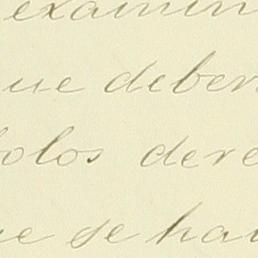 examin
ue deber
olos dere
e se hau